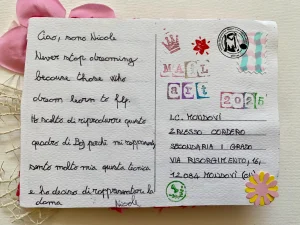 Ciao, sono Nicole
Never stop dreaming
because those who
dream learn to fly.
Ho scelto di riprodurre questo
quadro di perché mi rappresenta,
sento molto mia questa tecnica
e ho deciso di rappresentare la
dama Nicole
MAIL
art 2025
I.C. MONDOVÌ
CORDERO
SECONDARIA I GRADO
VIA RISORGIMENTO, 16,
12084 MONDOVÌ (CN)